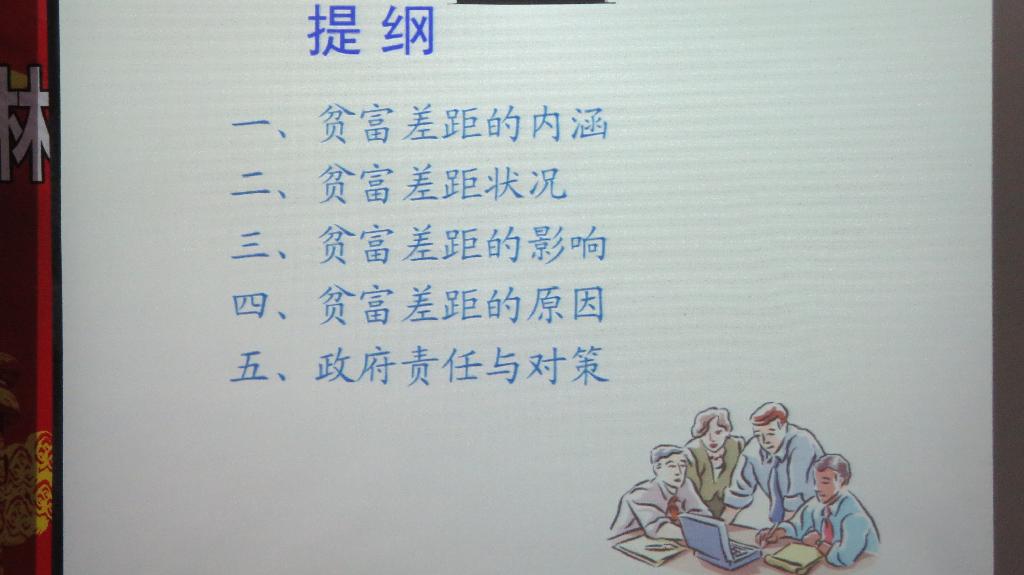 提纲
林
一、贫富差距的内涵
二、贫富差距状况
三、贫富差距的影响
四、贫富差距的原因
五、政府责任与对策